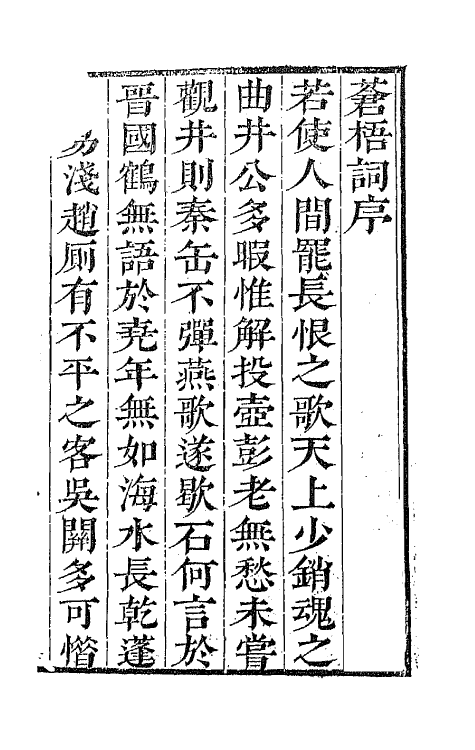 蒼梧詞序
若使人間罷長恨之歌天上少銷魂之
曲井公多暇惟解投壺彭老無愁未嘗
觀井則秦缶不彈燕歌遂歇石何言於
晉國鶴無語於堯年無如海水長乾蓬
淺趙厠有不平之客吳關多可㥽